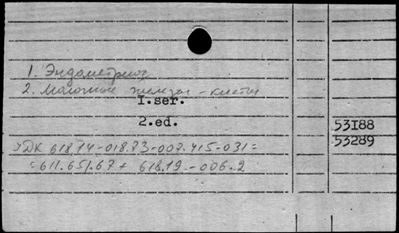 1. Эндометриоз
2. Молочные железы - кисты
I.ser.
2.ed.
53I88
53289
УДК 618.14-018.73-007.415-031=
=611.651.67 + 618.19.-006.2